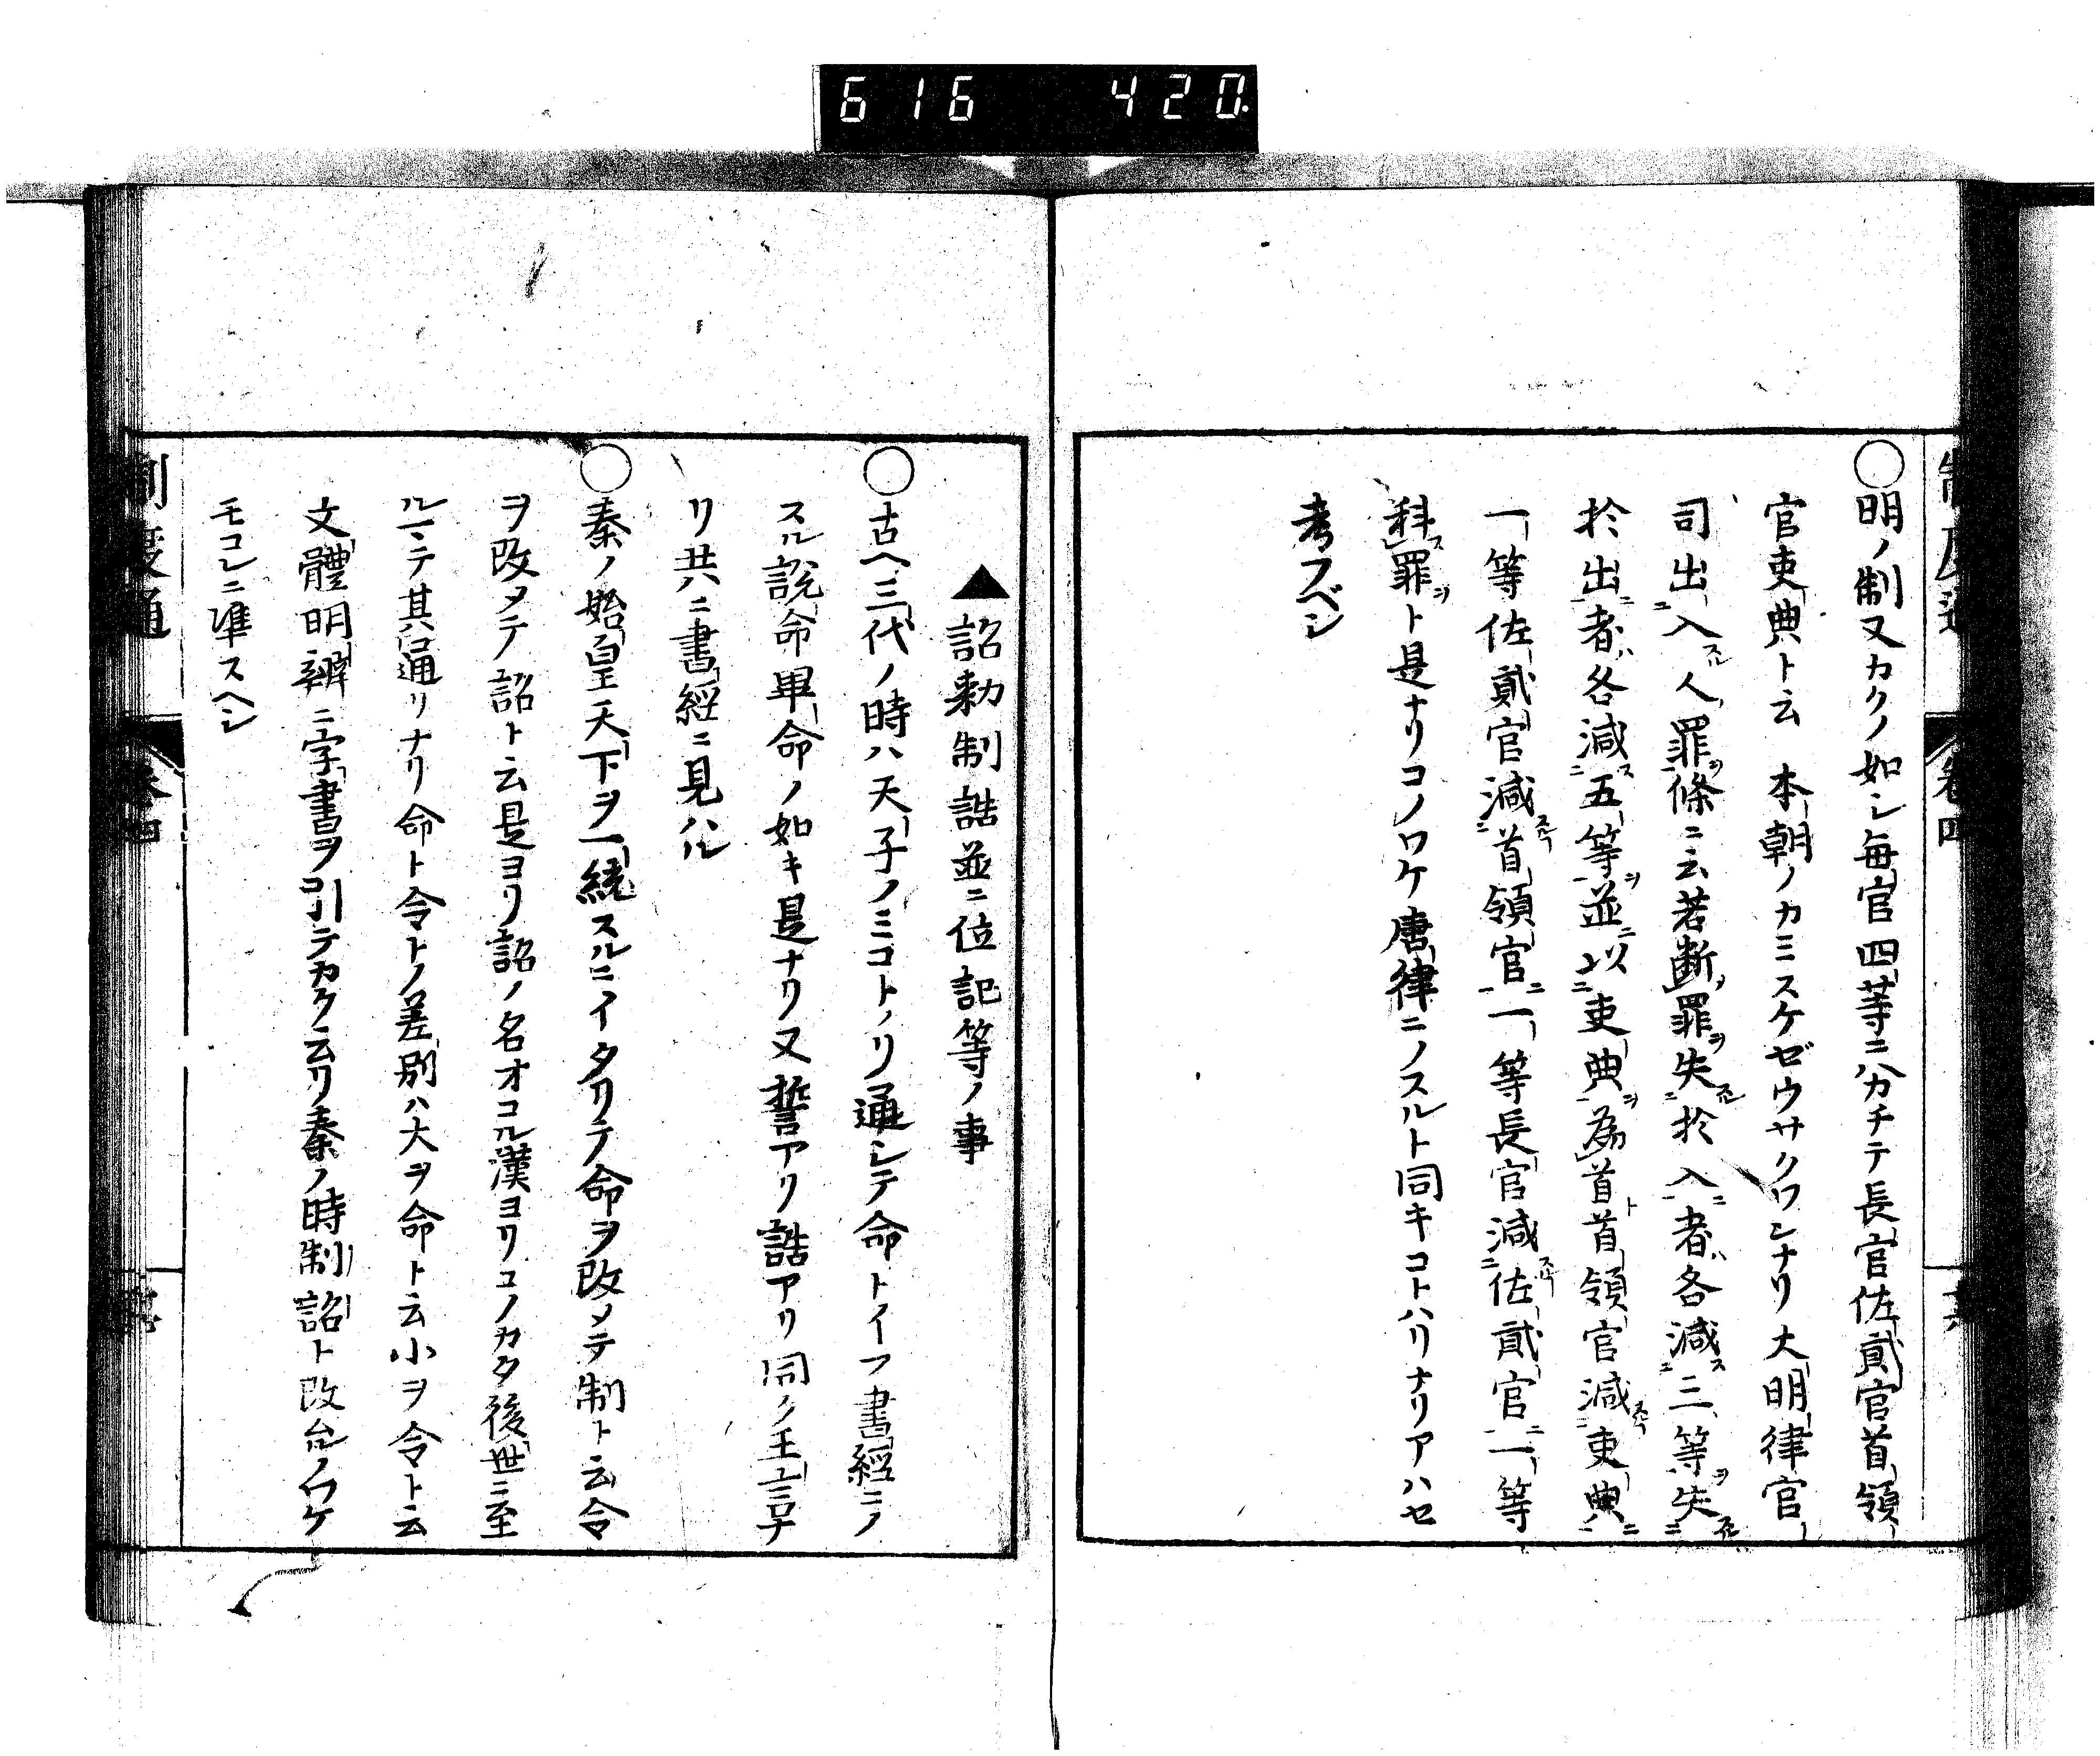 616 420
○明ノ制又カクノ如シ毎官四等ニハカチテ長官佐貳官首領
官吏典ト云 本朝ノカミスケゼウサクワンナリ大明律官
司出入スル人罪ヲ條ニ云若断罪ヲ失スル於入ニ者ハ各減ス三等ヲ失スル
於出ニ者ハ各減ス五等ヲ並ニ以吏典ヲ為首ト首領官減スルヿ吏典ニ
一等佐貳官減スルヿ首領官ニ一等長官減スルヿ佐貳官ニ一等
科ス罪ヲト是ナリコノワケ唐律ニノスルト同キコトハリナリアハセ
考フベシ
▲詔勅制誥並ニ位記等ノ事
○古ヘ三代ノ時ハ天子ノミコトノリ通シテ命トイフ書經ニノ
スル説命畢命ノ如キ是ナリ又誓アリ誥アリ同ク王言ナ
リ共ニ書經ニ見ハル
○秦ノ始皇天下ヲ一統スルニイタリテ命ヲ改メテ制ト云令
ヲ改メテ詔ト云是ヨリ詔ノ名オコル漢ヨリコノカタ後世ニ至
ルマテ其通リナリ命ト令トノ差別ハ大ヲ命ト云小ヲ令ト云
文體明辨ニ字書ヲ引テカク云リ秦ノ時制詔ト改ルノワケ
モコレニ準スヘシ
制度通 巻四